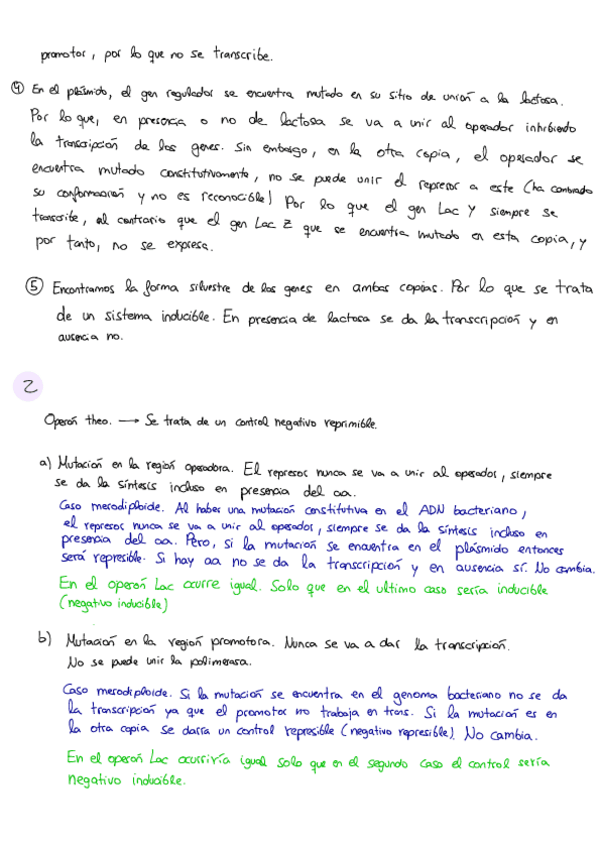 promotor, por lo que no se transcribe.
④ En el plásmido, el gen regulador se encuentra mutado en su sitio de unión a la lactosa.
Por lo que, en presencia o no de lactosa se va a unir al operador inhibiendo
la transcripción de los genes. Sin embargo, en la otra copia, el operador se
encuentra mutado constitutivamente, no se puede unir el represor a este (ha cambiado
su conformación y no es reconocible) Por lo que el gen Lac Y siempre se
transcribe, al contrario que el gen Lac Z que se encuentra mutado en esta copia, y
por tanto, no se expresa.
⑤ Encontramos la forma silvestre de los genes en ambas copias. Por lo que se trata
de un sistema inducible. En presencia de lactosa se da la transcripción y en
ausencia no.
2
Operón theo. → Se trata de un control negativo reprimible.
a) Mutación en la región operadora. El represor nunca se va a unir al operador, siempre
se da la síntesis incluso en presencia del aa.
Caso merodiploide. Al haber una mutación constitutiva en el ADN bacteriano,
el represor nunca se va a unir al operador, siempre se da la síntesis incluso en
presencia del aa. Pero, si la mutación se encuentra en el plásmido entonces
será represible. Si hay aa no se da la transcripción y en ausencia sí. No cambia.
En el operón Lac ocurre igual. Solo que en el ultimo caso sería inducible
(negativo inducible)
b) Mutación en la región promotora. Nunca se va a dar la transcripción.
No se puede unir la polimerasa.
Caso merodiploide. Si la mutación se encuentra en el genoma bacteriano no se da
la transcripción ya que el promotor no trabaja en trans. Si la mutación es en
la otra copia se daría un control represible (negativo represible) No cambia.
En el operón Lac ocurriría igual solo que en el segundo caso el control sería
negativo inducible.